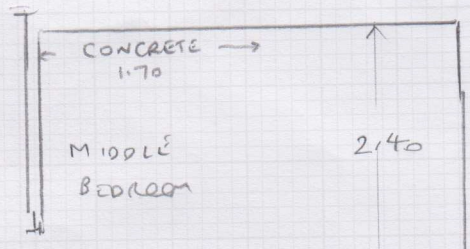 CONCRETE
1.70
MIDDLE
BEDROOM
2.40